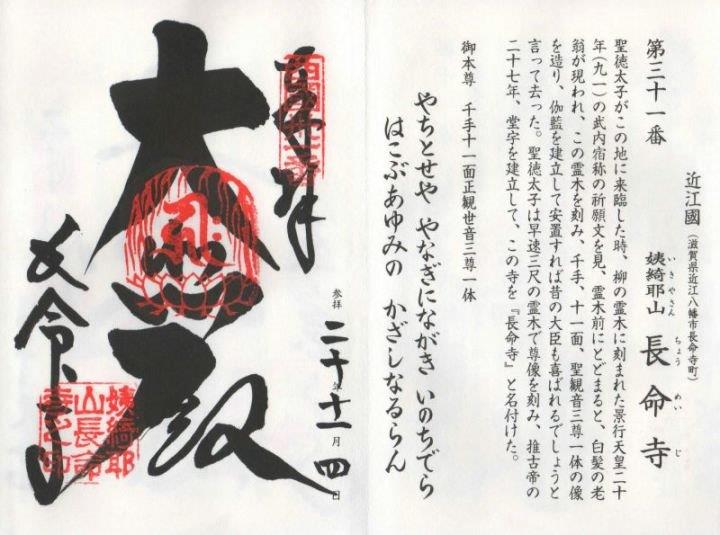 近江國（滋賀県近江八幡市長命寺町）
いきやさん
姨綺耶山
ちょうめいじ
長命寺
第三十一番
聖徳太子がこの地に来臨した時、柳の霊木に刻まれた景行天皇二十
年（九一）の武内宿称の祈願文を見、霊木前にとどまると、白髪の老
翁が現われ、この霊木を刻み、千手、十一面、聖観音三尊一体の像
を造り、伽藍を建立して安置すれば昔の大臣も喜ばれるでしょうと
言って去った。聖徳太子は早速三尺の霊木で尊像を刻み、推古帝の
二十七年、堂字を建立して、この寺を『長命寺』と名付けた。
御本尊　千手十一面正観世音三尊一体
やちとせや　やなぎにながき　いのちでら
はこぶあゆみの　かざしなるらん
奉拝
参拝 二十年十一月四日
大悲殿
長命寺
姨綺耶
山長命
寺之印